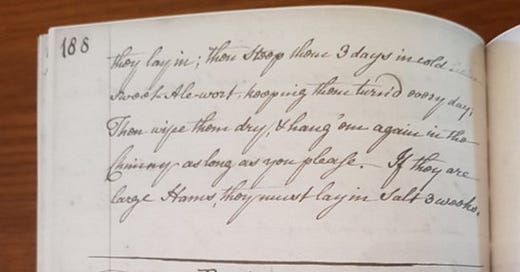 188
they lay in; then steep them 3 days in cold
sweet Ale-wort, keeping them turn'd every day;
Then wipe them dry, & hang 'em again in the
Chimny as long as you please. If they are
large Hams, they must lay in Salt 3 weeks.